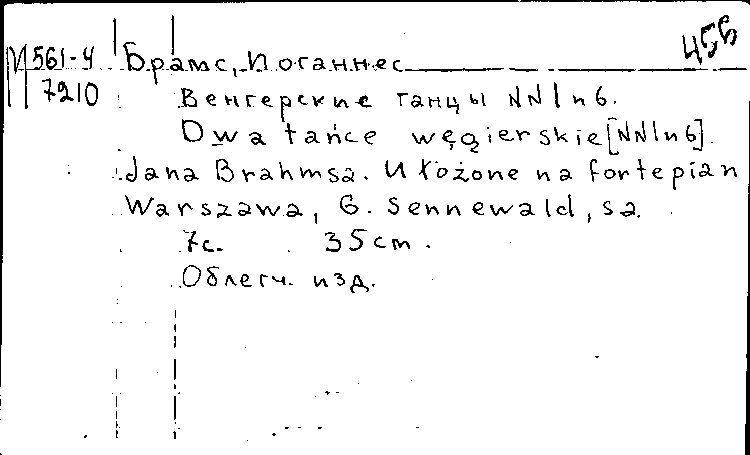 456
М 561-4 Брамс, Иоганнес
7210 Венгерские танцы NN 1 и 6.
Dwa tańce węgierskie [NN 1 и 6].
Jana Brahmsa. Ułożone na fortepian
Warszawa, G. Sennewald, s.a.
7с. 35 cm.
Облегч. изд.